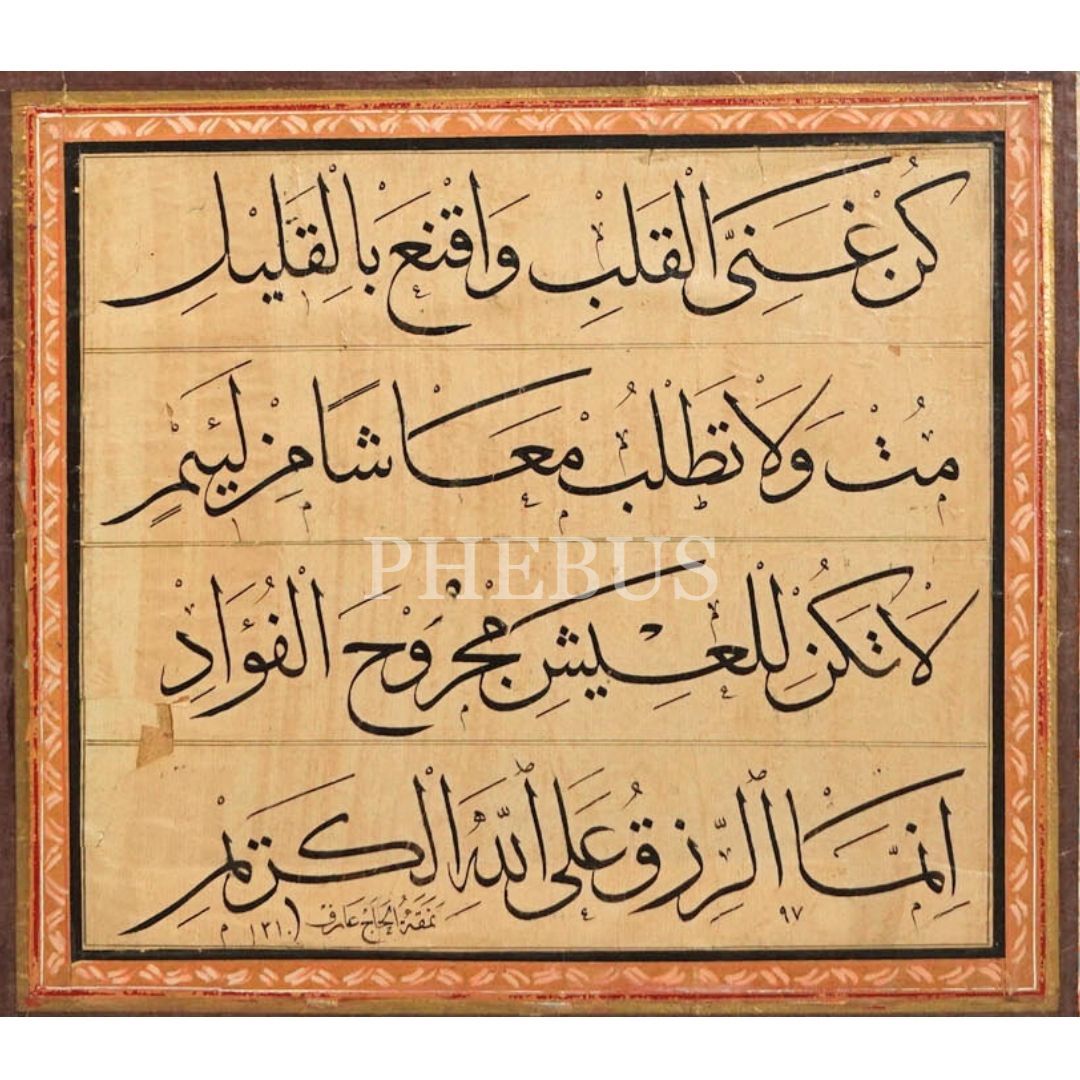 كُنْ غَنِيَّ الْقَلْبِ وَاقْنَعْ بِالْقَلِيلِ
مُتْ وَلَا تَطْلُبْ مَعَاشًا مِنْ لَئِيمٍ
PHEBUS
لَا تَكُنْ لِلْعَيْشِ مَجْرُوحَ الْفُؤَادِ
اِنَّمَا الرِّزْقُ عَلَى اللّٰهِ الْكَرِيمْ
٩٧
نمقه الحاج عارف ١٣١٠